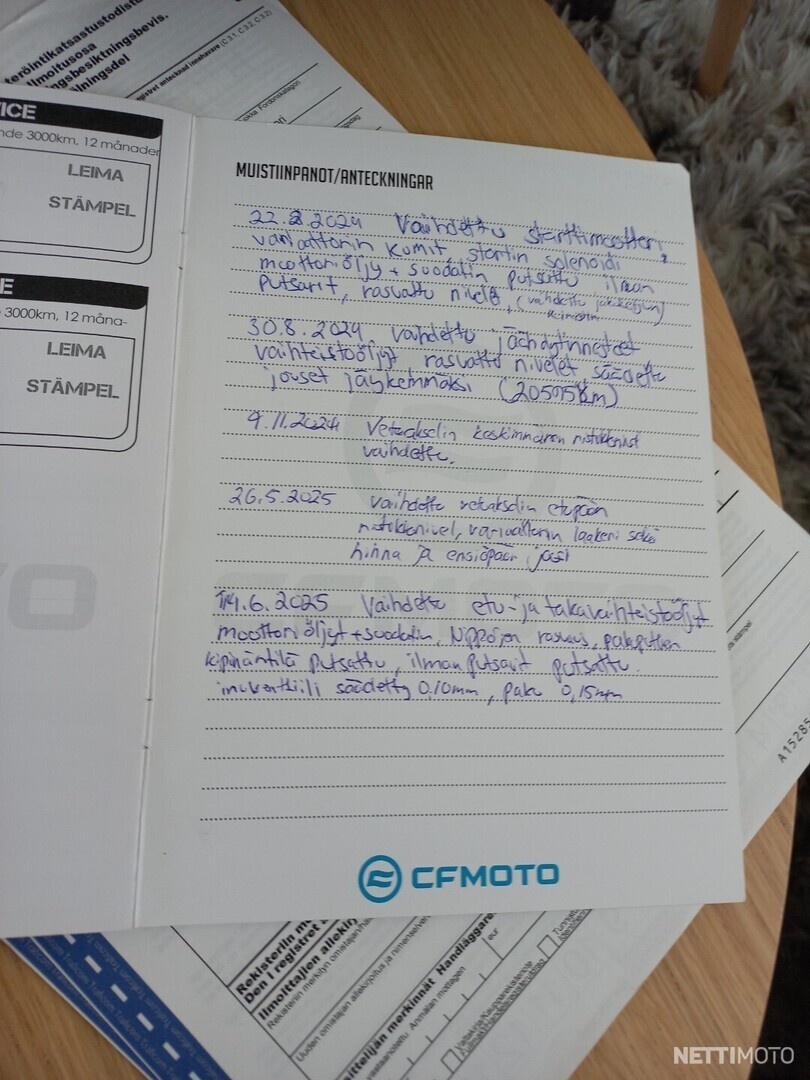 teröintikatsastustodistu
ilmoitusosa
ngsbesiktningsbevis.
lningsdel
VICE
nde 3000km, 12 månader
LEIMA
STÄMPEL
E
3000km, 12 måna-
LEIMA
STÄMPEL
MUISTIINPANOT/ANTECKNINGAR
22.8.2024 Vaihdettu starttimoottori,
variaattorin kumit, startin solenoidi
moottoriöljy + suodatin putsattu ilman
putsarit, rasvattu nivelet, (vaihdettu
30.8.2024 vaihdettu jäähdytinnesteet
vaihteistoöljyt rasvattu nivelet säädetty
jouset jäykemmäksi
9.11.2024 Vetoakselin keskimmäinen
vaihdettu.
26.5.2025 vaihdettu vetoakselin etupään
ristikkonivel, variaattorin laakeri sekä
hinna ja ensiöpään
14.6.2025 Vaihdettu etu- ja takavaihteistoöljyt
moottoriöljyt + suodatin, Nippojen rasvaus, pakoputken
kipinäntila putsattu, ilmanputsarit putsattu.
imuventtiili säädetty 0,10mm, pako 0,15mm
CFMOTO
A15285
Rekisteriin m
Den i registret
Ilmoittajien allekirj
Rekisteriin merkityn omistajan/ha
Uuden omistajan allekirjoitus ja nimenselven
ittelijän merkinnät Handläggare
Anmälan mottagen
eur
NETTIMOTO